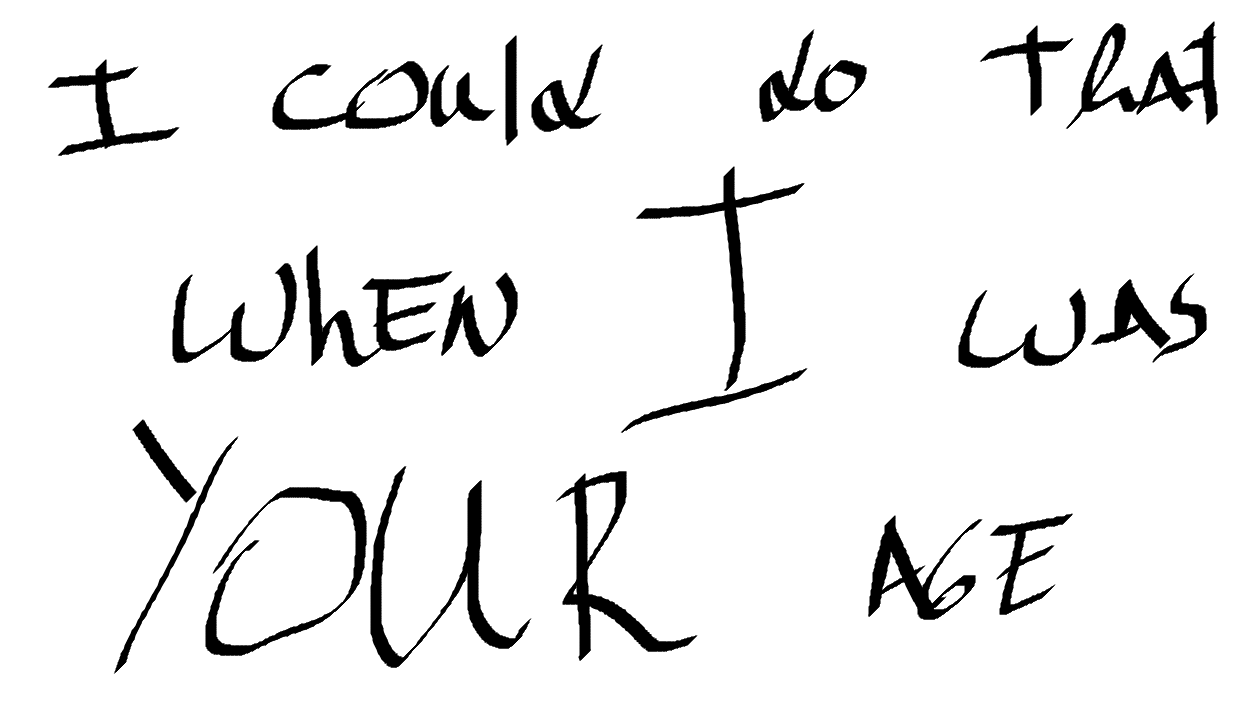 I could do that
when I was
YOUR AGE